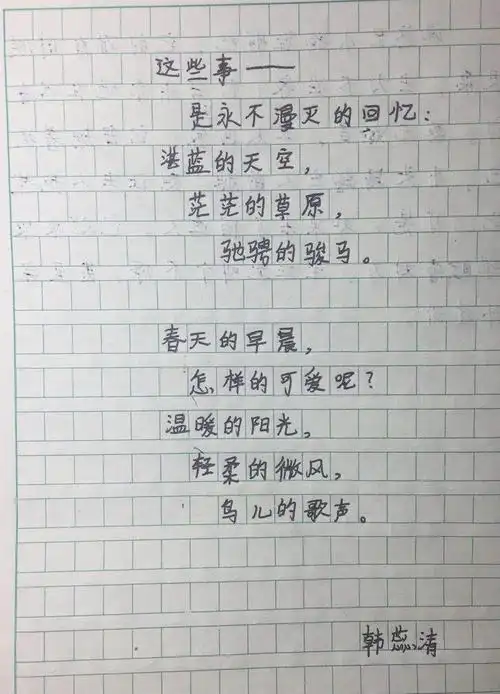 这些事——
是永不漫灭的回忆：
湛蓝的天空，
茫茫的草原，
驰骋的骏马。
春天的早晨，
怎样的可爱呢？
温暖的阳光，
轻柔的微风，
鸟儿的歌声。
韩蕊清